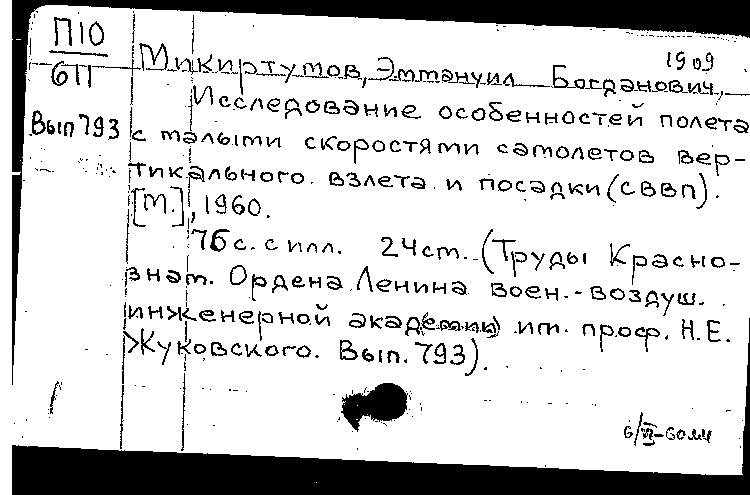 П10
611
Вып 793
1909
Микиртумов, Эммануил Богданович,
Исследование особенностей полета
с малыми скоростями самолетов вер-
тикального взлета и посадки (СВВП).
[М.], 1960.
76 с. с илл. 24 см. (Труды Красно-
знам. Ордена Ленина воен.-воздуш.
инженерной академии им. проф. Н.Е.
Жуковского. Вып. 793).
6/VI-60